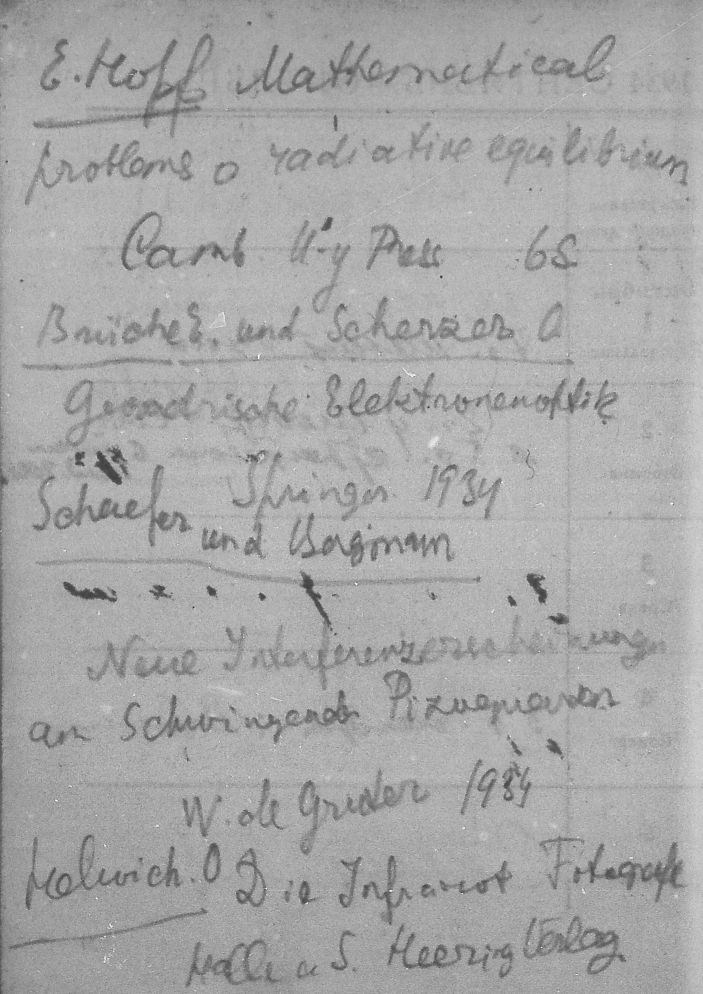 E. Hopf Mathematical
problems o radiative equilibrium
Camb U-y Press 6S
Brüche E. und Scherzer O
Geometrische Elektronenoptik
Springer 1934
Schaefer und Bergmann
Neue Interferenzerscheinungen
an Schwingenden
W. de Gruter 1934
Helwich. O Die Infrarot Fotografie
Halle a S. Verlag